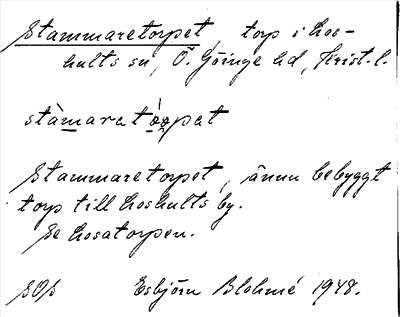 Stammaretorpet, torp i Hos-
hults sn, Ö. Göinge hd, Krist. l.
stàmaratòrpat
Stammaretorpet, ännu bebyggt
torp till Hoshults by.
Se Hosatorpen.
SOS Esbjörn Blohmé 1948.